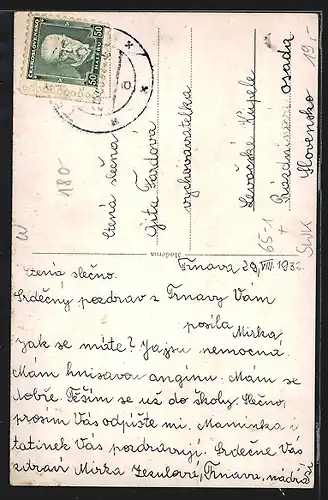 ČESKOSLOVENSKO
50 HALÉŘŮ 50
Ctená slečna
Gita Fardova
vychovavatelka
Levočské Kúpele
Prázdninová osada
Slovensko
19,-
180,-
65-1
+
SWK
Moderna
Trnava 29/VIII 193
Ctená slečno.
Srdečný pozdrav z Trnavy Vám
posíla Mirka
Jak se máte? Ja jsu nemocná.
Mám hnisavou anginu. Mám se
dobře. Těším se už do školy. Slečno,
prosím Vás odpište mi. Maminka i
tatinek Vás pozdravují. Srdečne Vás
zdraví Mirka Zezulová, Trnava, nádraží